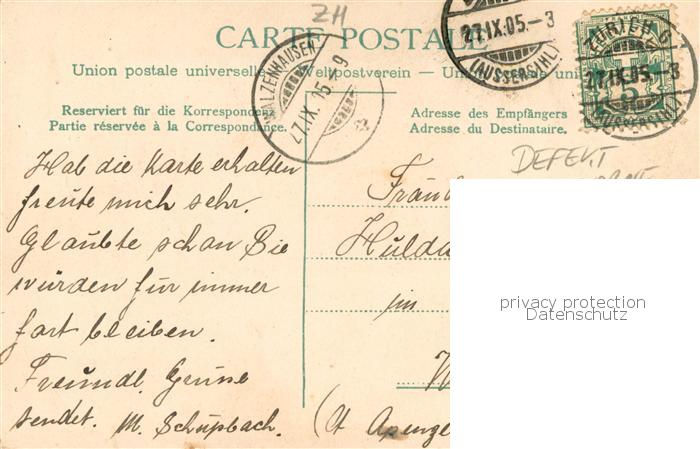 ZH
CARTE POSTALE
Union postale universelle — Weltpostverein — Un
Reserviert für die Korrespondenz
Partie réservée à la Correspondance.
Adresse des Empfängers
Adresse du Destinataire.
WALZENHAUSEN
27.IX.05-9
27.IX.05.-3
(AUSSERSIHL)
ZÜRICH 6
27.IX.05.-3
(AUSSERSIHL)
5
DEFEKT
Hab die Karte erhalten
freute mich sehr.
Glaubte schon Sie
würden für immer
fort bleiben.
Freundl. Grüße
sendet. M. Schüpbach.
Fräul
Hulda
im
W
(Ct Apenze
privacy protection
Datenschutz